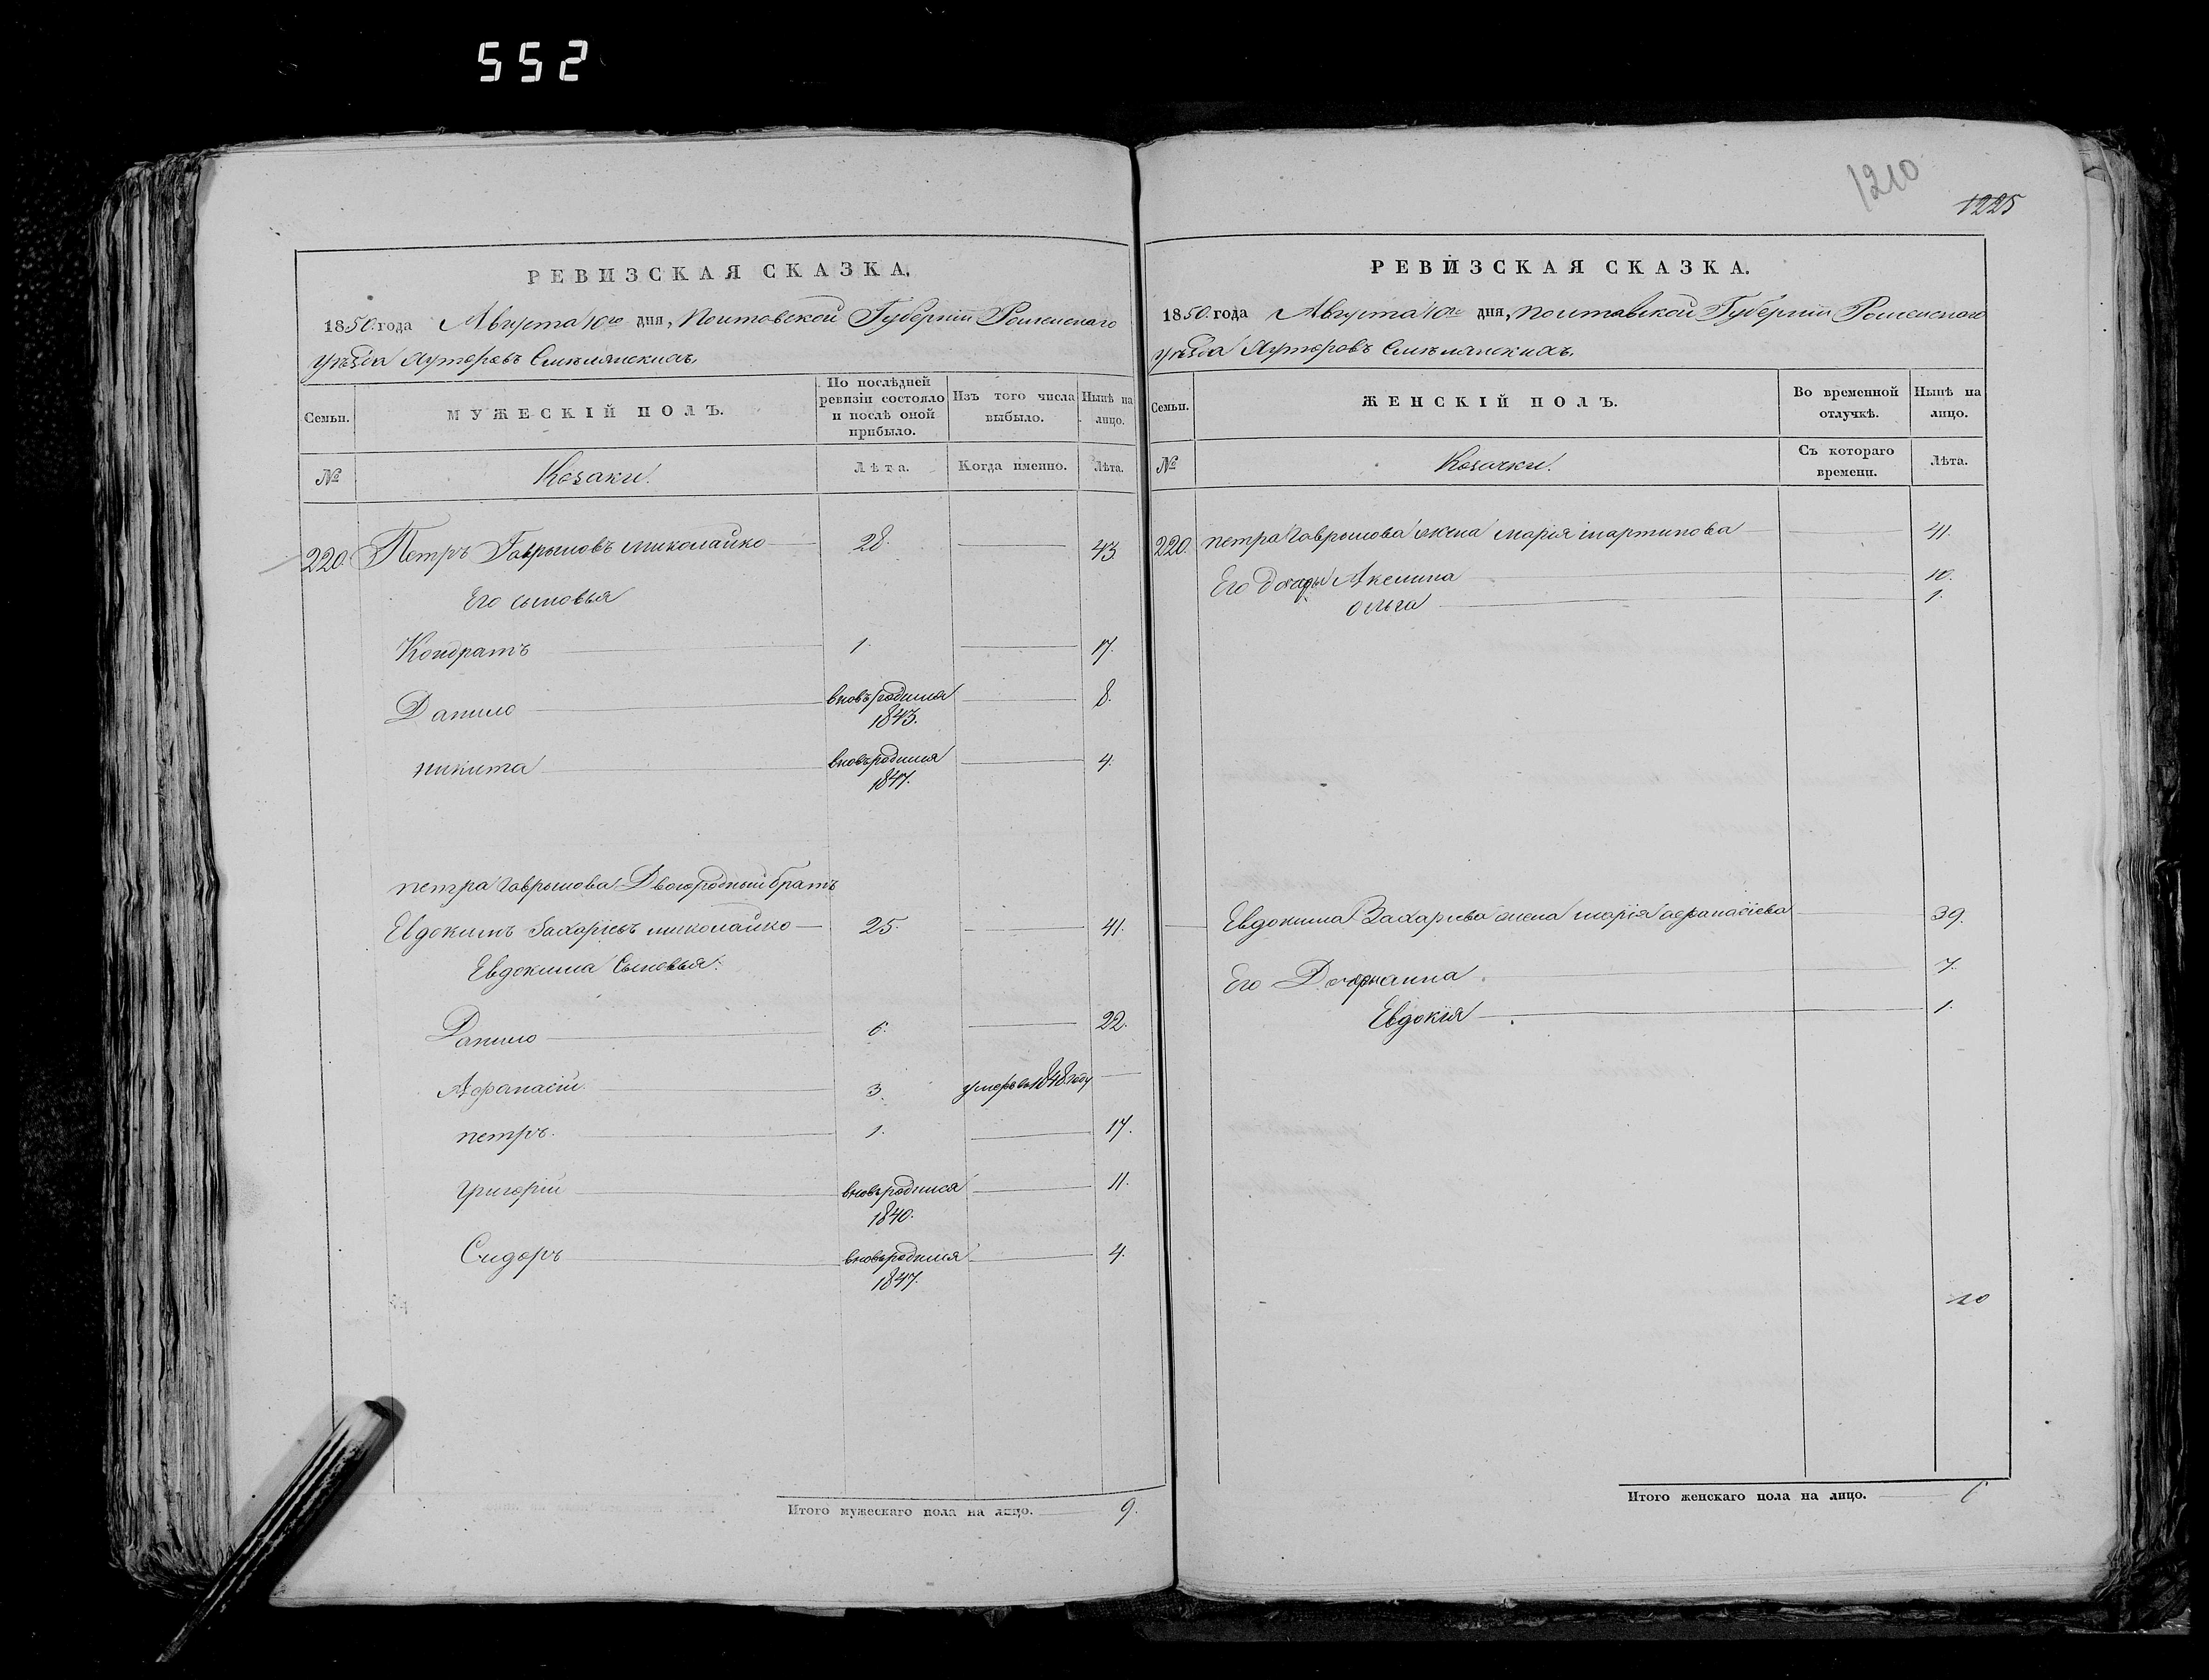 552
1210
1225
РЕВИЗСКАЯ СКАЗКА.
1850 года Августа 10го дня, Полтавской Губерніи Роменскаго
уѣзда Хуторовъ Смѣлянскихъ.
Семьи.
МУЖЕСКІЙ ПОЛЪ.
По послѣдней ревизіи состояло и послѣ оной прибыло.
Изъ того числа выбыло.
Нынѣ на лицо.
№
Козаки.
Лѣта.
Когда именно.
Лѣта.
220. Петръ Гаврыловъ Миколайко 28. 43.
Его сыновья
Кондратъ 1. 17.
Данило вновьродился 1843. 8.
никита вновьродился 1847. 4.
петра Гаврылова Двоюродный братъ
Евдокимъ Захаріевъ миколайко 25. 41.
Евдокима Сыновья:
Данило 6. 22.
Афанасій 3. умеръ въ 1848 году
петръ. 1. 17.
григорій вновьродился 1840. 11.
Сидоръ вновьродился 1847. 4.
Итого мужескаго пола на лицо. 9.
РЕВИЗСКАЯ СКАЗКА.
1850 года Августа 10го дня, Полтавской Губерніи Роменскаго
уѣзда Хуторовъ Смѣлянскихъ.
Семьи.
ЖЕНСКІЙ ПОЛЪ.
Во временной отлучкѣ.
Нынѣ на лицо.
№
Козачки.
Съ котораго времени.
Лѣта.
220. петра Гаврылова жена марія мартинова 41.
Его дочери Акелина 10.
ольга 1.
Евдокима Захариева жена марія афанасіева 39.
Его Дочери анна 7.
Евдокія 1.
Итого женскаго пола на лицо.